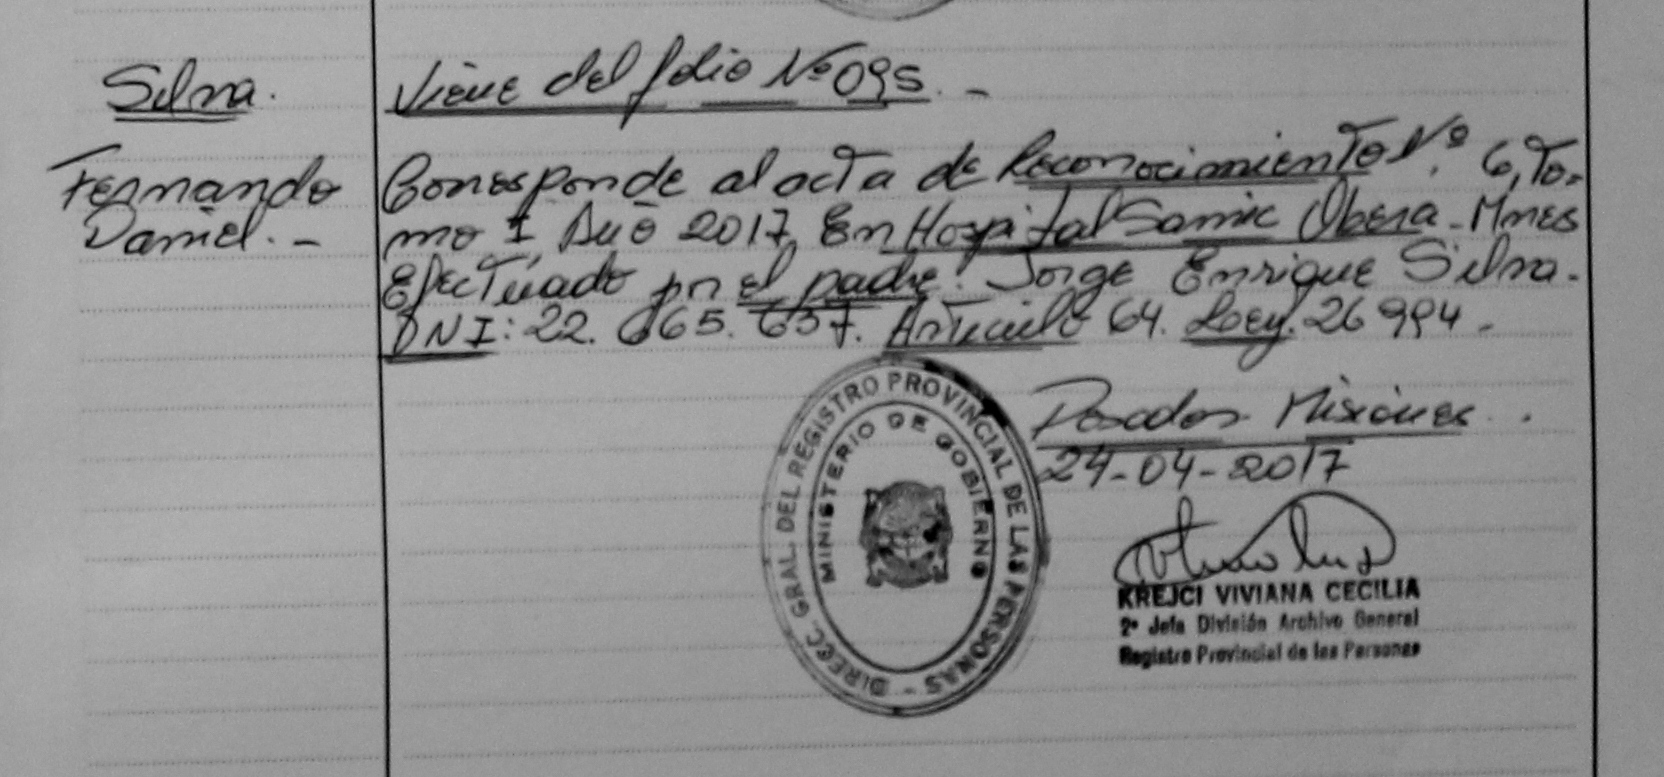 Silva.
Fernando
Daniel. -
Viene del folio Nº 095. -
Corresponde al acta de Reconocimiento Nº. 6, To-
mo I Año 2017, En Hospital Samic Obera - Mnes
Efectuado por el padre: Jorge Enrique Silva.
DNI: 22. 665. 657. Articulo 64. Ley. 26 994 -
Posadas Misiones.
24-04-2017
DIRECC. GRAL. DEL REGISTRO PROVINCIAL DE LAS PERSONAS -
MINISTERIO DE GOBIERNO
KREJCI VIVIANA CECILIA
2º Jefa División Archivo General
Registro Provincial de las Personas